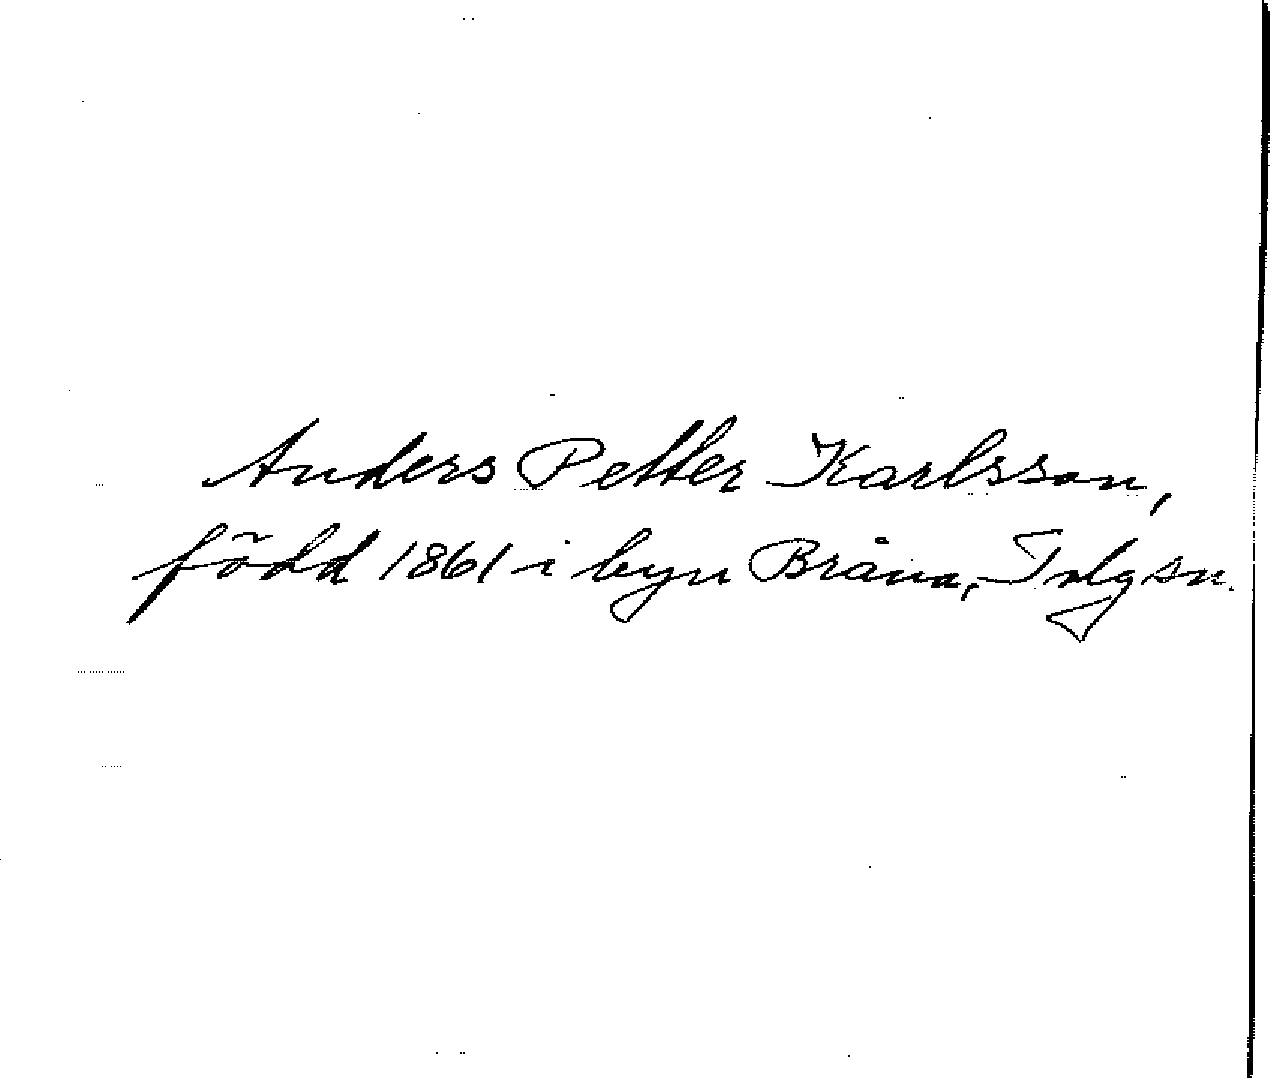 Anders Petter Karlsson,
född 1861 i byn Bråna, Tolg sn.